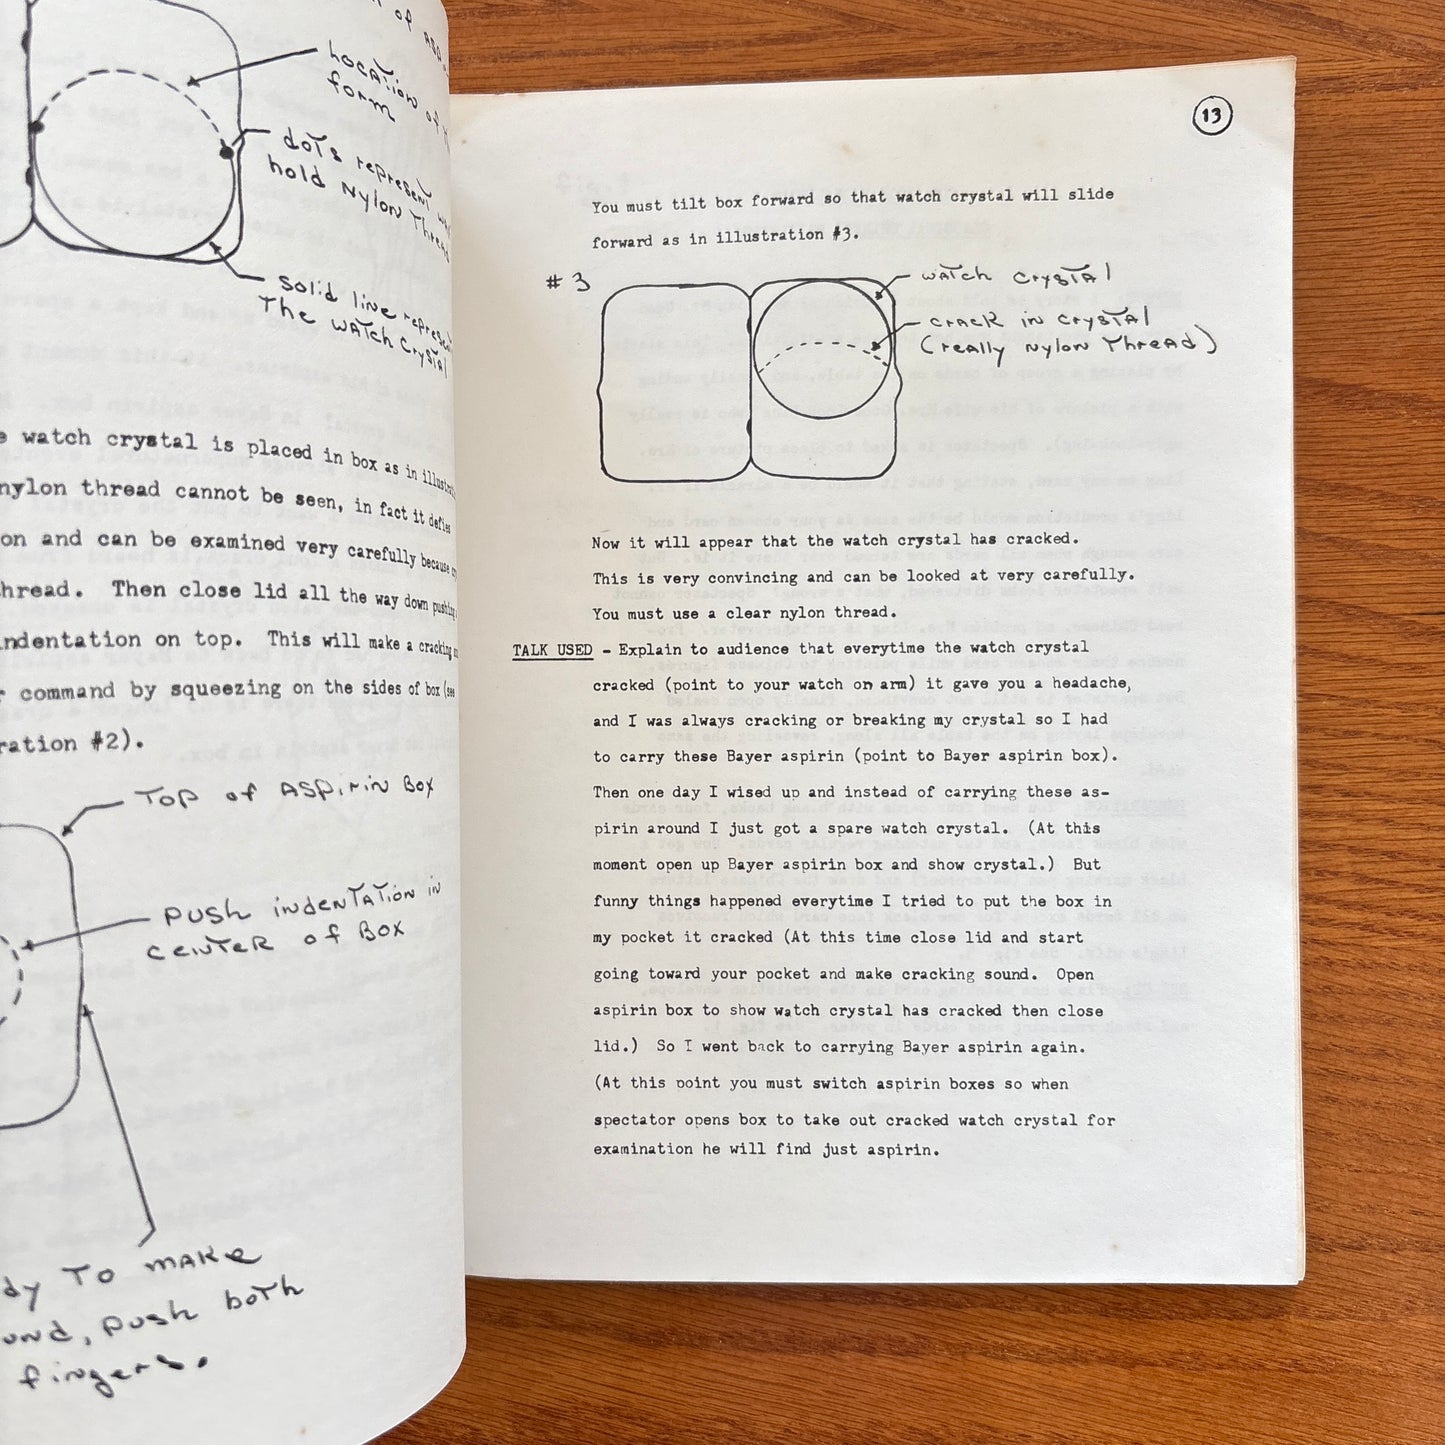 of
location of
form
dots represent
hold Nylon Thread
solid line represent
The watch Crystal
watch crystal is placed in box as in
nylon thread cannot be seen, in fact it defies
on and can be examined very carefully because
thread. Then close lid all the way down pushing
indentation on top. This will make a cracking
command by squeezing on the sides of box (see
#2).
Top of Aspirin Box
push indentation in
center of Box
To make
push both
fingers.
13
You must tilt box forward so that watch crystal will slide
forward as in illustration #3.
#3
watch crystal
crack in crystal
(really nylon thread)
Now it will appear that the watch crystal has cracked.
This is very convincing and can be looked at very carefully.
You must use a clear nylon thread.
TALK USED - Explain to audience that everytime the watch crystal
cracked (point to your watch on arm) it gave you a headache,
and I was always cracking or breaking my crystal so I had
to carry these Bayer aspirin (point to Bayer aspirin box).
Then one day I wised up and instead of carrying these as-
pirin around I just got a spare watch crystal. (At this
moment open up Bayer aspirin box and show crystal.) But
funny things happened everytime I tried to put the box in
my pocket it cracked (At this time close lid and start
going toward your pocket and make cracking sound. Open
aspirin box to show watch crystal has cracked then close
lid.) So I went back to carrying Bayer aspirin again.
(At this point you must switch aspirin boxes so when
spectator opens box to take out cracked watch crystal for
examination he will find just aspirin.